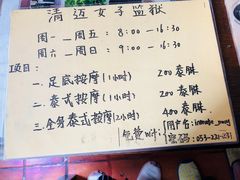 清迈女子监狱
周一——周五：8:00—16:30
周六——周日：9:00—16:30
项目：
一、足底按摩（1小时） 200泰铢
二、泰式按摩（1小时） 200泰铢
三、全身泰式按摩（2小时） 400泰铢
免费wifi：用户名：
密码：053-221-231